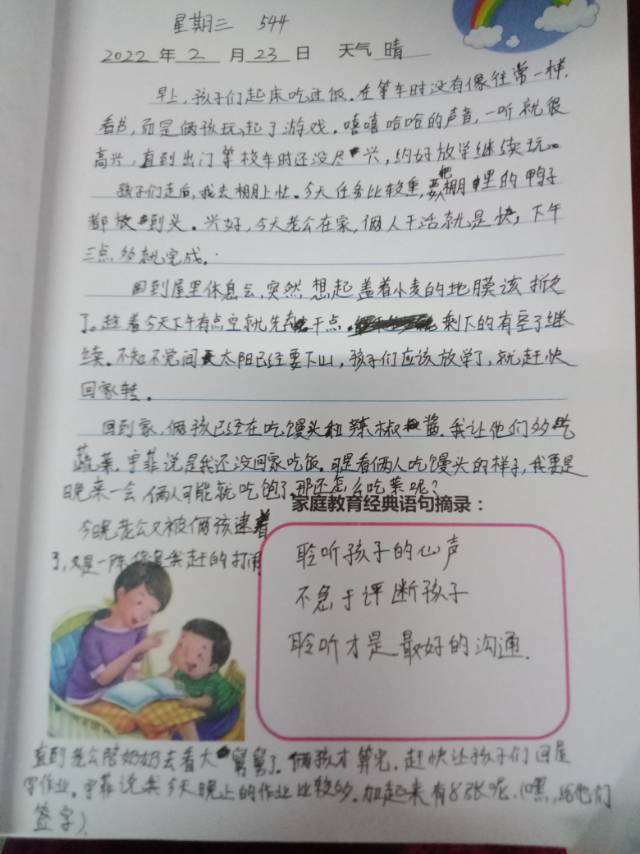 星期三 544
2022 年 2 月 23 日 天气 晴
早上，孩子们起床吃过饭。在等车时没有像往常一样
看书，而是俩孩玩起了游戏。嘻嘻哈哈的声音，一听就很
高兴，直到出门等校车时还没尽兴，约好放学继续玩。
孩子们走后，我去棚上忙。今天任务比较重，要把棚里的鸭子
都放到头。兴好，今天老公在家，俩人干活就是快，下午
三点多就完成。
回到屋里休息会，突然想起盖着小麦的地膜该拆
了。趁着今天下午有点空就先去干点。剩下的有空了继
续。不知不觉间太阳已经要下山，孩子们应该放学了，就赶快
回家转。
回到家，俩孩已经在吃馒头和辣椒酱。我让他们多吃
蔬菜。宇菲说是我还没回家吃饭。可是看俩人吃馒头的样子，我要是
晚来一会，俩人可能就吃饱了，那还怎么吃菜呢？
家庭教育经典语句摘录：
今晚老公又被俩孩逮着
了，又是一阵 赶的打闹
聆听孩子的心声
不急于评断孩子
聆听才是最好的沟通.
直到老公陪奶奶去看大舅舅了。俩孩才算完。赶快让孩子们回屋
写作业。宇菲说关今天晚上的作业比较多。加起来有8张呢。(嘿，给他们
签字)